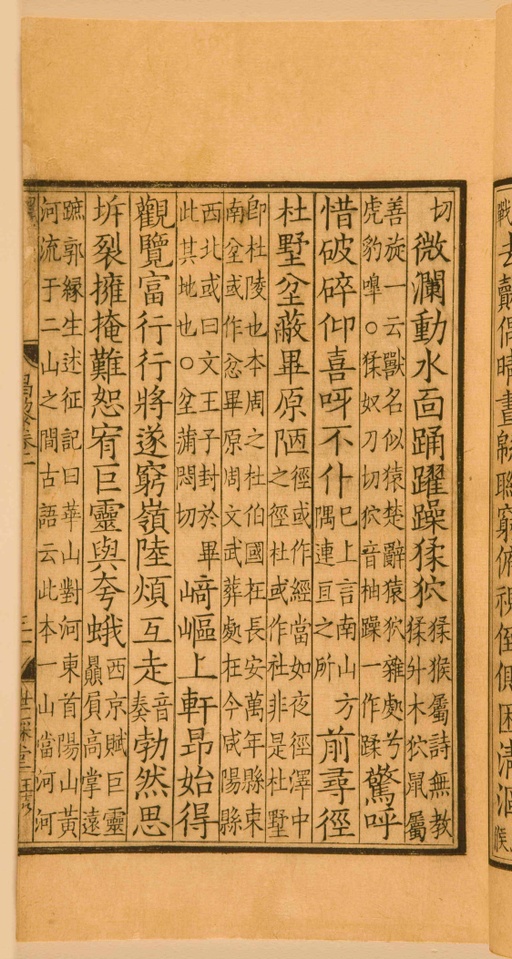 去覿偶晴晝緜聯窮俯視倒側困清漚
切微瀾動水面踊躍躁猱狖猱猴屬詩無教
猱升木狖鼠屬
善旋一云獸名似猿楚辭猿狖雜處兮
虎豹嘷○猱奴刀切狖音柚躁一作蹂驚呼
惜破碎仰喜呀不仆巳上言南山方
隅連亘之所前尋徑
杜墅坌蔽畢原陋徑或作經當如夜徑澤中
之徑杜或作社非是杜墅
卽杜陵也本周之杜伯國在長安萬年縣東
南坌或作忿畢原周文武葬處在今咸陽縣
西北或曰文王子封於畢
此其地也○坌蒲悶切崎嶇上軒昻始得
觀覽富行行將遂窮嶺陸煩互走音
奏勃然思
坼裂擁掩難恕宥巨靈與夸蛾西京賦巨靈
贔屓高掌遠
蹠郭緣生述征記曰華山對河東首陽山黃
河流于二山之間古語云此本一山當河河